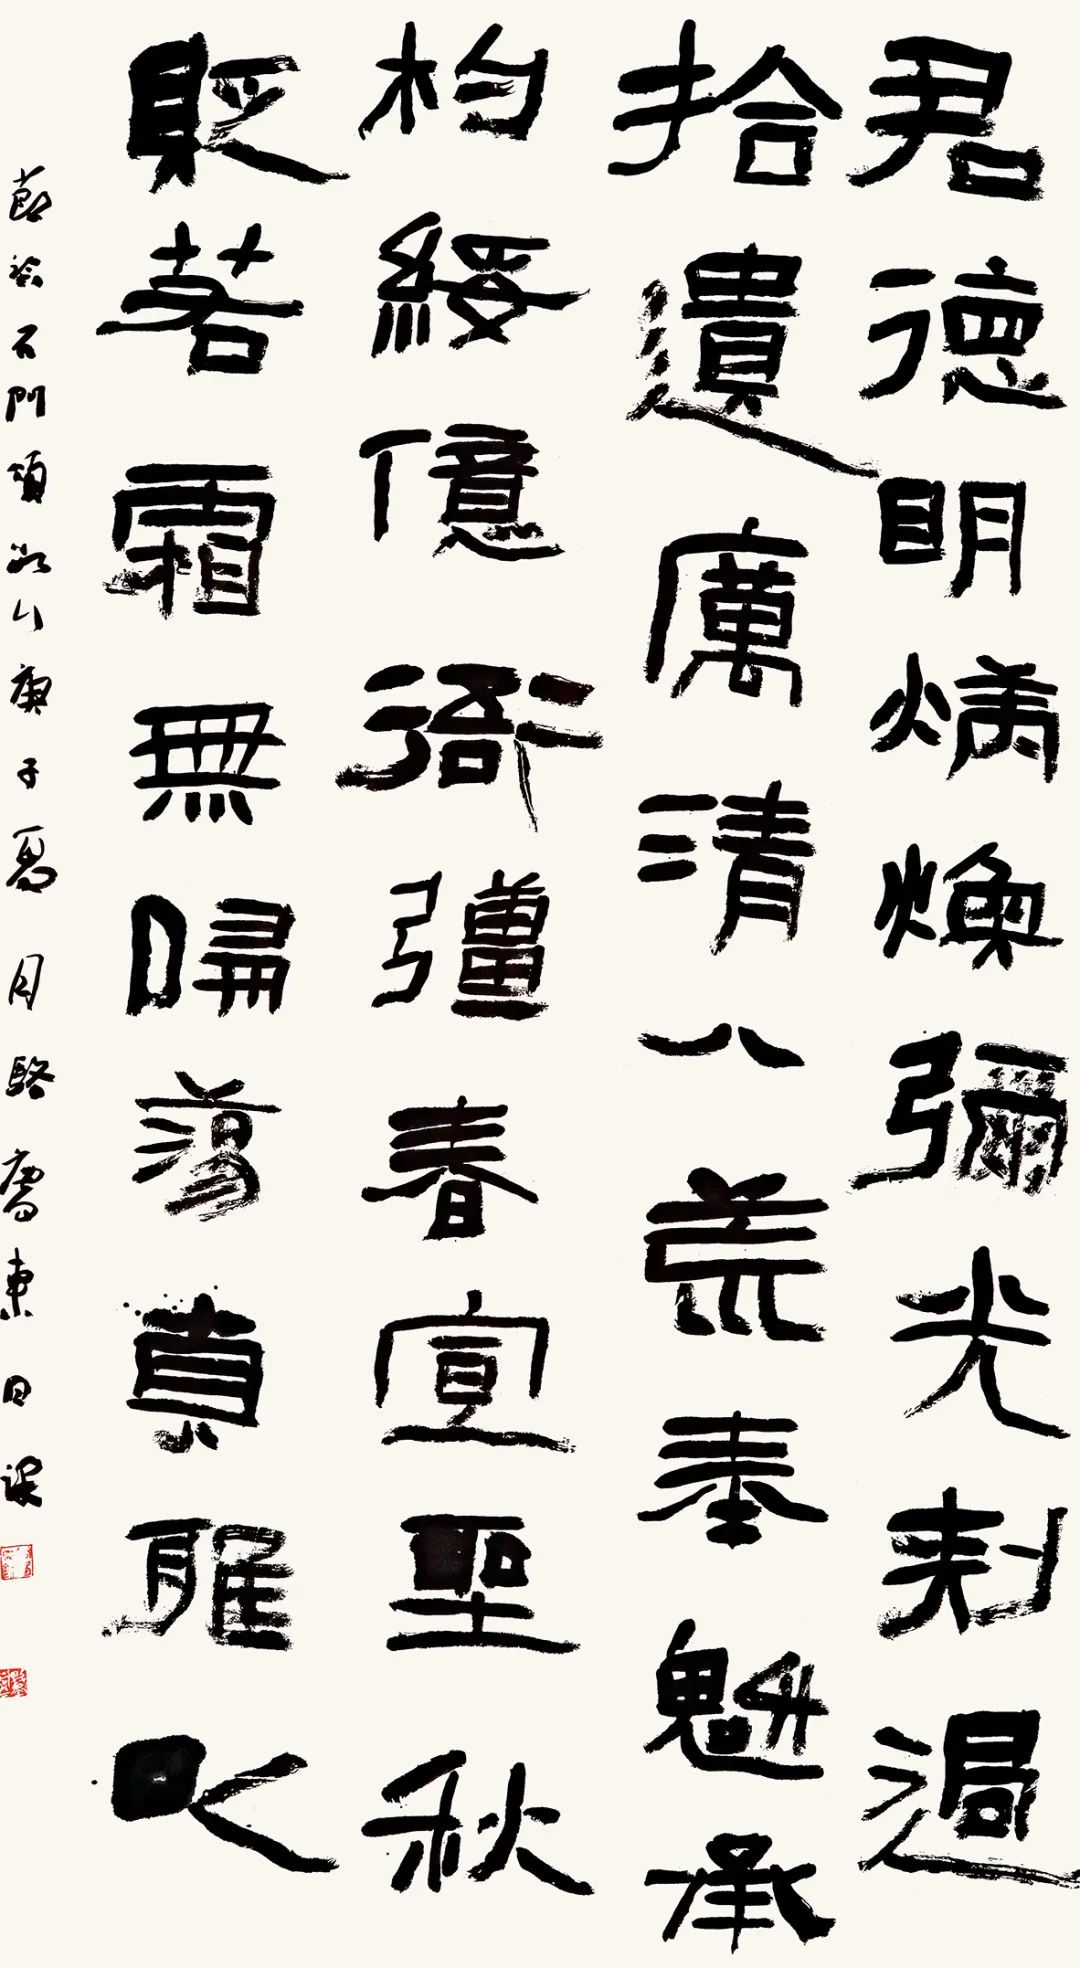 君德明炳煥彌光刺過
拾遺厲清八荒奉魁承
杓綏億衙彊春宣聖秋
貶若霜無偏蕩貞雅以
節臨石門頌 庚子夏月 東